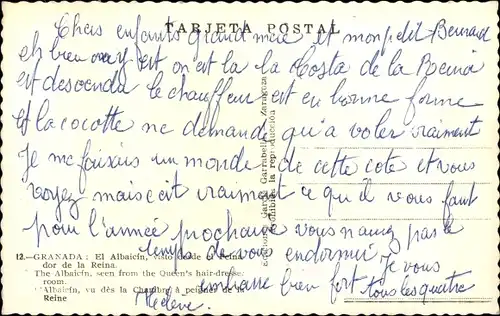 TARJETA POSTAL
Chers enfants grand mère et mon petit Bernard
eh bien ça y est on est la la Costa de la Reina
est descendu le chauffeur est en bonne forme
et la cocotte ne demande qu'a voler vraiment
Je me faisais un monde de cette cote et vous
voyez mais c'est vraiment ce qu'il vous faut
pour l'année prochaine vous n'aurez pas le
temps de vous endormir Je vous
embrasse bien fort tous les quatre
Hélène.
12.—GRANADA: El Albaicín, visto desde el Peina-
dor de la Reina.
The Albaicin, seen from the Queen's hair-dress-
room.
L'Albaicin, vu dès la Chambre à peigner de la
Reine
García Garrabella Zaragoza
Prohibida la reproducción